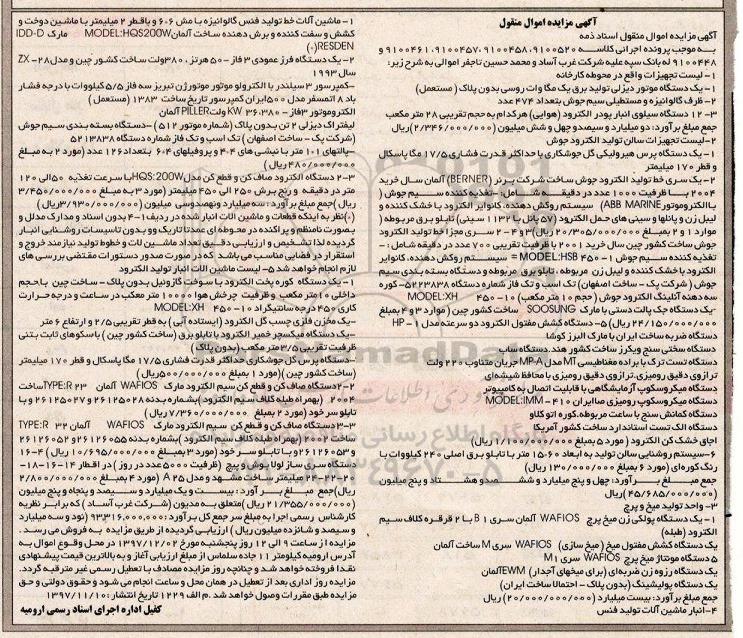 آگهی مزایده اموال منقول
آگهی مزایده اموال منقول اسناد ذمه
به موجب پرونده اجرائی کلاسه ۹۱۰۰۵۲۰، ۹۱۰۰۴۵۸، ۹۱۰۰۴۵۷، ۹۱۰۰۴۶۱ و
۹۱۰۰۴۴۸ له بانک سپه علیه شرکت غرب آساد و محمد حسین تاجفر اموالی به شرح زیر:
۱- لیست تجهیزات واقع در محوطه کارخانه
۱- یک دستگاه موتور دیزلی تولید برق یک مگا وات روسی بدون پلاک (مستعمل)
۲- ظرف گالوانیزه و مستطیلی سیم جوش بتعداد ۴۷۴ عدد
۳- ۱۲ دستگاه سیلوی انبار پودر الکترود (هوایی) هرکدام به حجم تقریبی ۲۸ متر مکعب
جمع مبلغ برآورد: دو میلیارد و سیصد و چهل و شش میلیون (۲/۳۴۶/۰۰۰/۰۰۰) ریال
۲- لیست تجهیزات سالن تولید الکترود جوش
۱- یک دستگاه پرس هیرولیکی گل جوشکاری با حداکثر قدرت فشاری ۱۷/۵ مگا پاسکال
و قطر ۱۷۰ میلیمتر
۲- یک سری خط تولید الکترود جوش ساخت شرکت برنر (BERNER) آلمان سال خرید
۲۰۰۴ با ظرفیت ۱۰۰۰ عدد در دقیقه شامل - تغذیه کننده سیم جوش (
با الکتروموتور ABB MARINE) سیستم روکش دهنده، کانوایر الکترود با خشک کننده و
لیبل زن و پانلها و سینی های حمل الکترود (۵۷ پانل با ۱۱۳۲ سینی) تابلو برق مربوطه (
موارد ۱ و ۲ بمبلغ ۲۰/۳۰۵/۰۰۰/۰۰۰ ریال) ۳ و ۴ - ۲ سری مجزا خط تولید الکترود
جوش ساخت کشور چین سال خرید ۲۰۰۱ با ظرفیت تقریبی ۷۰۰ عدد در دقیقه شامل : -
تغذیه کننده سیم جوش MODEL:HSB ۴۵۰-۱ = سیستم روکش دهنده، کانوایر
الکترود با خشک کننده و لیبل زن مربوطه ، تابلو برق مربوطه و دستگاه بسته بندی سیم
جوش (شرکت پک - ساخت اصفهان) تک اسب و تک فاز شماره دستگاه ۵۲۲۳۸۳۸-۵- کوره
سه دهنه آنلینگ الکترود جوش (حجم ۱۰ متر مکعب) MODEL:XH ۴۵۰-۱۰
-یک دستگاه جک پالت دستی با مارک SOOSUNG ساخت کشور چین (موارد ۳ و ۴ بمبلغ
۲۴/۱۵۰/۰۰۰/۰۰۰ ریال) ۵- دستگاه کشش مفتول الکترود دو سرعته مدل HP - ۱
دستگاه ضربه ساخت ایران با مارک البرز کوشا
دستگاه سختی سنج ویکرز ساخت کشور هند. دستگاه
دستگاه تست ترک با براده مغناطیسی MT مدل MP-A جریان متناوب ۲۲۰ ولت
ترازوی دقیق رومیزی، ترازوی دقیق رومیزی با محافظ شیشه‌ای
دستگاه میکروسکوپ آزمایشگاهی با قابلیت اتصال به کامپیوتر
دستگاه میکروسکوپ رومیزی صاایران MODEL:IMM - ۴۱۰
دستگاه کمانش سنج با ساعت مربوطه، کوره اتو کلاو
دستگاه الک تست استاندارد ساخت کشور آمریکا
اجاق خشک کن الکترود (مورد ۵ بمبلغ ۱/۱۰۰/۰۰۰/۰۰۰ ریال)
۶-سیستم روشنایی سالن تولید به ابعاد ۶۰-۱۵ متر با تابلو برق اصلی ۲۴۰ کیلووات با
رنگ کوره‌ای (مورد ۶ بمبلغ ۱۳۰/۰۰۰/۰۰۰ ریال)
جمع مبلغ برآورد: چهل و پنج میلیارد و ششصد و هشتاد و پنج میلیون
(۴۵/۶۸۵/۰۰۰/۰۰۰) ریال
۳- واحد تولید میخ و پرچ
۱- یک دستگاه پولکی زن میخ پرچ WAFIOS آلمان سری B ۱ با ۲ قرقره کلاف سیم
الکترود (طبله)
یک دستگاه کشش مفتول میخ (میخ سازی) WAFIOS سری M ساخت آلمان
۵ دستگاه مونتاژ میخ پرچ WAFIOS سری M ۱
یک دستگاه رزوه زن ضربه‌ای (برای میخهای آجدار) EWM آلمان
یک دستگاه پولیشینگ (بدون پلاک - احتمالا ساخت ایران)
جمع مبلغ برآورد: بیست میلیارد (۲۰/۰۰۰/۰۰۰/۰۰۰) ریال
۴-انبار ماشین آلات تولید فنس
۱- ماشین آلات خط تولید فنس گالوانیزه با مش ۶.۶ و با قطر ۲ میلیمتر با ماشین دوخت و
کشش و سفت کننده و برش دهنده ساخت آلمان MODEL:HQS200W مارک IDD-D
RESDEN(۰)
۲- یک دستگاه فرز عمودی ۳ فاز -۵۰ هرتز ، ۳۸۰ ولت ساخت کشور چین و مدل ZX -۲۸
سال ۱۹۹۳
-کمپرسور ۳ سیلندر با الکترولو موتور موتورژن تبریز سه فاز ۵/۵ کیلووات با درجه فشار
باد ۸ اتمسفر مدل ۵۰۰ ایران کمپرسور تاریخ ساخت ۱۳۸۳ (مستعمل)
الکتروموتور ۳فاز-۳۶،۳۸۰ KW ولت PILLER آلمان
لیفتراک دیزلی ۲ تن بدون پلاک (شماره موتور ۵۱۲) -دستگاه بسته بندی سیم جوش
(شرکت پک - ساخت اصفهان) تک اسب و تک فاز شماره دستگاه ۵۲۱۳۸۳۸
-پالتهای ۱۰۱ متر با نبشی های ۴.۴ و پروفیلهای ۶.۴ بتعداد ۱۲۶ عدد (مورد ۲ به مبلغ
۴۸۰/۰۰۰/۰۰۰ ریال)
۳- ۲ دستگاه الکترود صاف کن و قطع کن مدل HQS:200W با سرعت تغذیه ۵۰ الی ۱۲۰
متر در دقیقه و رنج برش ۲۵۰ الی ۴۵۰ میلیمتر (مورد ۳ به مبلغ ۳/۴۵۰/۰۰۰/۰۰۰
ریال) جمع مبلغ برآورد : سه میلیارد و نهصدو سی میلیون (۳/۹۳۰/۰۰۰/۰۰۰ ریال)
(۰)نظر به اینکه قطعات و ماشین آلات انبار شده در ردیف ۱-۴ بدون اسناد و مدارک مدل و
بصورت نامنظم و پراکنده در محوطه انبار تاریک و و بدون تاسیسات روشنایی انبار
گردیده لذا تشخیص و ارزیابی دقیق تعداد ماشین آلات و خطوط تولید نیازمند خروج و
استقرار در فضایی مناسب می باشد که در صورت صدور دستورات مقتضی بررسی های
لازم انجام خواهد شد ۵- لیست ماشین الات انبار تولید الکترود
۱-یک دستگاه کوره پخت الکترود با سوخت گازوئیل بدون پلاک - ساخت چین با حجم
داخلی ۱۰ متر مکعب و ظرفیت چرخش هوا ۱۰۰۰۰ متر معکب در ساعت و درجه حرارت
کاری ۴۵۰ درجه سانتیگراد MODEL:XH ۴۵۰-۱۰
-یک مخزن فلزی چسب گل الکترود (ایستاده آبی) به قطر تقریبی ۲/۵ و ارتفاع ۶ متر
-یک دستگاه میکسچر خمیر الکترود با تابلو برق (ساخت کشور چین) با سکوهای ثابت بتنی
ظرفیت تقریبی ۳/۵ متر مکعب(بدون پلاک)
-دستگاه پرس گل جوشکاری حداکثر قدرت فشاری ۱۷/۵ مگا پاسکال و قطر ۱۷۰ میلیمتر
(ساخت کشور چین) (مورد ۱ بمبلغ ۵۰۰/۰۰۰/۰۰۰ ریال)
۲-۲دستگاه صاف کن و قطع کن سیم الکترود مارک WAFIOS آلمان TYPE:R ۲۳ ساخت
۲۰۰۲ (بهمراه طبله کلاف سیم الکترود) بشماره بدنه ۲۶۱۲۵۰۲۸ و ۲۶۱۲۵۰۲۷ و با
تابلو سر خود (مورد ۲ بمبلغ ۷/۳۶۰/۰۰۰/۰۰۰ ریال)
۳-۳ دستگاه صاف کن و قطع کن سیم الکترود مارک WAFIOS آلمان TYPE:R ۳۲
ساخت ۲۰۰۲ (بهمراه طبله کلاف سیم الکترود) بشماره بدنه ۲۶۱۲۶۰۵۵ و ۲۶۱۲۶۰۵۲
و ۲۶۱۲۶۰۵۳ و با تابلو سر خود (مورد ۳ بمبلغ ۱۰/۶۹۵/۰۰۰/۰۰۰ ریال) ۴-۱۶
دستگاه سری ساز لولا بوش و پیچ (ظرفیت ۵۰۰۰ عدد در روز) در اقطار ۱۴-۱۶-۱۸-
۲۰-۲۲-۲۴ میلیمتر ساخت مشهد و مدل A ۲۵ (مورد ۴ بمبلغ ۲/۸۰۰/۰۰۰/۰۰۰
ریال) جمع مبلغ برآورد : بیست و یک میلیارد و سیصد و پنجاه و پنج میلیون
(۲۱/۳۵۵/۰۰۰/۰۰۰ ریال) متعلق به مدیون (شرکت غرب آساد) که برابر نظریه
کارشناس رسمی اجرا به مبلغ سر جمع کل برآورد: ۹۳,۳۱۶,۰۰۰,۰۰۰ (نود و سه میلیارد
و سیصد و شانزده میلیون ریال) ارزیابی گردیده از طریق مزایده به فروش می رسد.
مزایده از ساعت ۹ الی ۱۲ روز پنجشنبه مورخ ۱۳۹۷/۱۲/۰۲ در محل وقوع اموال به
آدرس ارومیه کیلومتر ۱۱ جاده سلماس از مبلغ ارزیابی آغاز و به بالاترین قیمت پیشنهادی
نقدا فروخته خواهد شد و چنانچه روز مزایده مصادف با تعطیل رسمی غیر مترقبه گردد.
مزایده روز اداری بعد از تعطیل در همان محل و ساعت انجام می شود و حقوق دولتی و حق
مزایده طبق مقررات وصول خواهد شد. م الف ۱۲۲۹ تاریخ انتشار :۱۳۹۷/۱۱/۱۰
کفیل اداره اجرای اسناد رسمی ارومیه